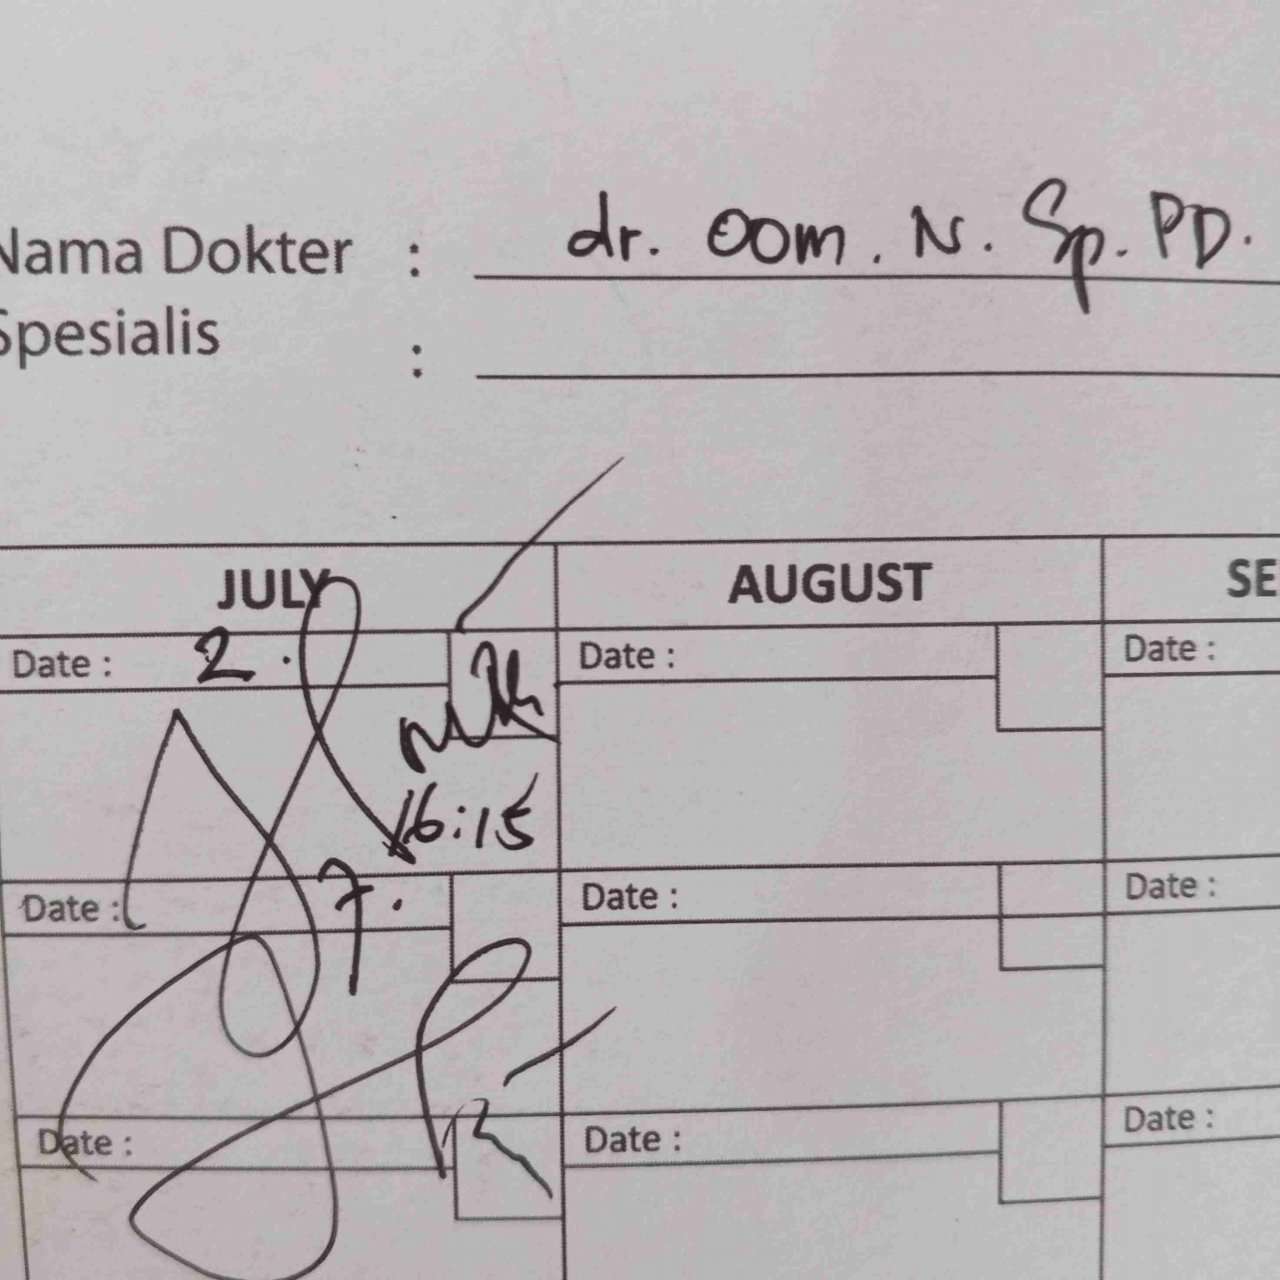 Nama Dokter : dr. Oom. N. Sp. PD.
Spesialis :
JULY AUGUST SE
Date : 2. Date : Date :
16:15
Date : 7. Date : Date :
Date : Date : Date :